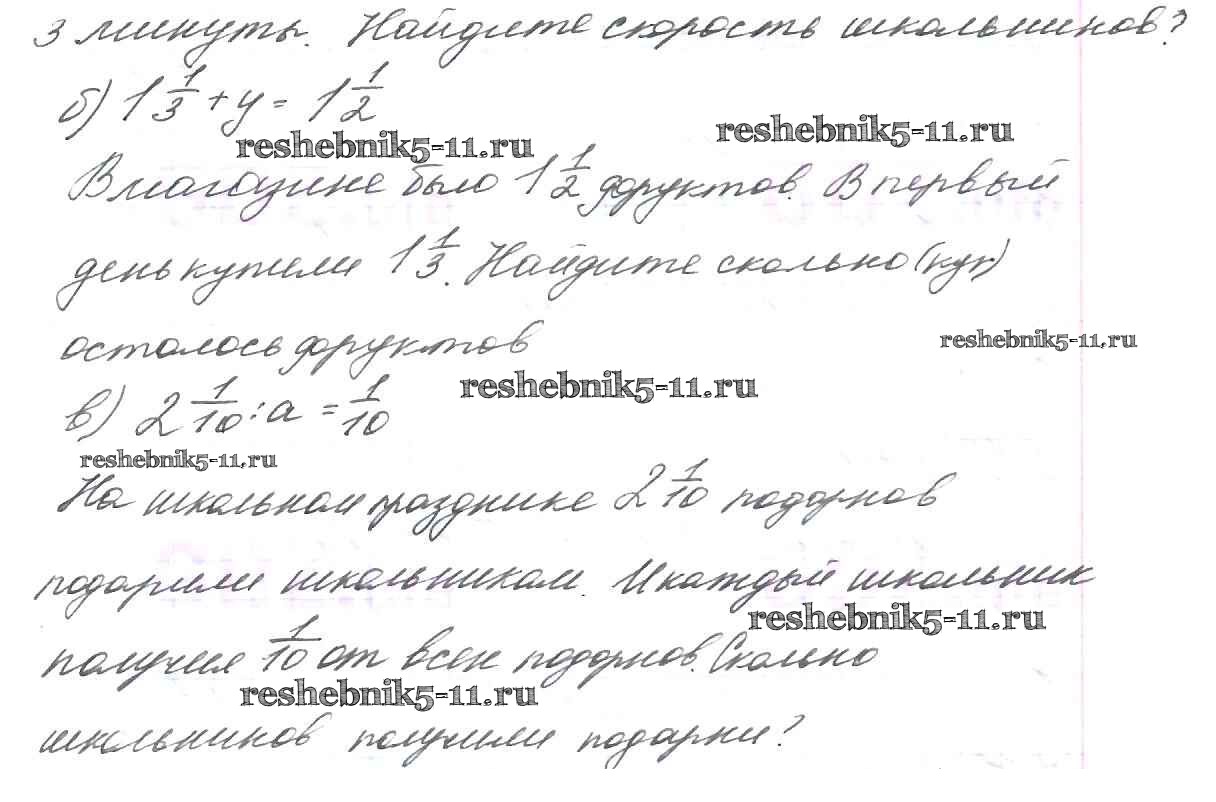 3 минуты. Найдите скорость школьников?
б) 1 1/3 + y = 1 1/2
reshebnik5-11.ru
reshebnik5-11.ru
В магазине было 1 1/2 фруктов. В первый
день купили 1 1/3. Найдите сколько
осталось фруктов
reshebnik5-11.ru
reshebnik5-11.ru
в) 2 1/10 : a = 1/10
reshebnik5-11.ru
На школьном празднике 2 1/10 подарков
подарили школьникам. И каждый школьник
reshebnik5-11.ru
получил 1/10 от всех подарков. Сколько
reshebnik5-11.ru
школьников получили подарки?